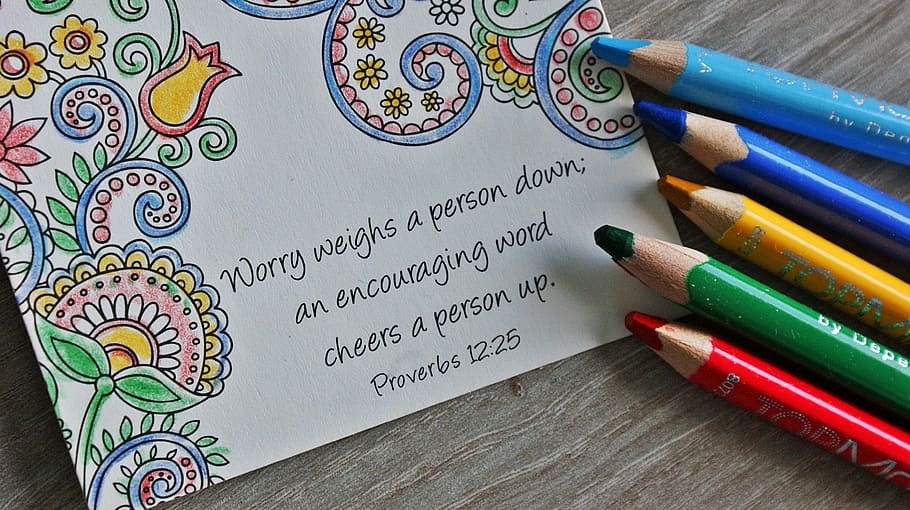 Worry weighs a person down;
an encouraging word
cheers a person up.
Proverbs 12:25
by Depe
TOPM
by Depe
TOPMo